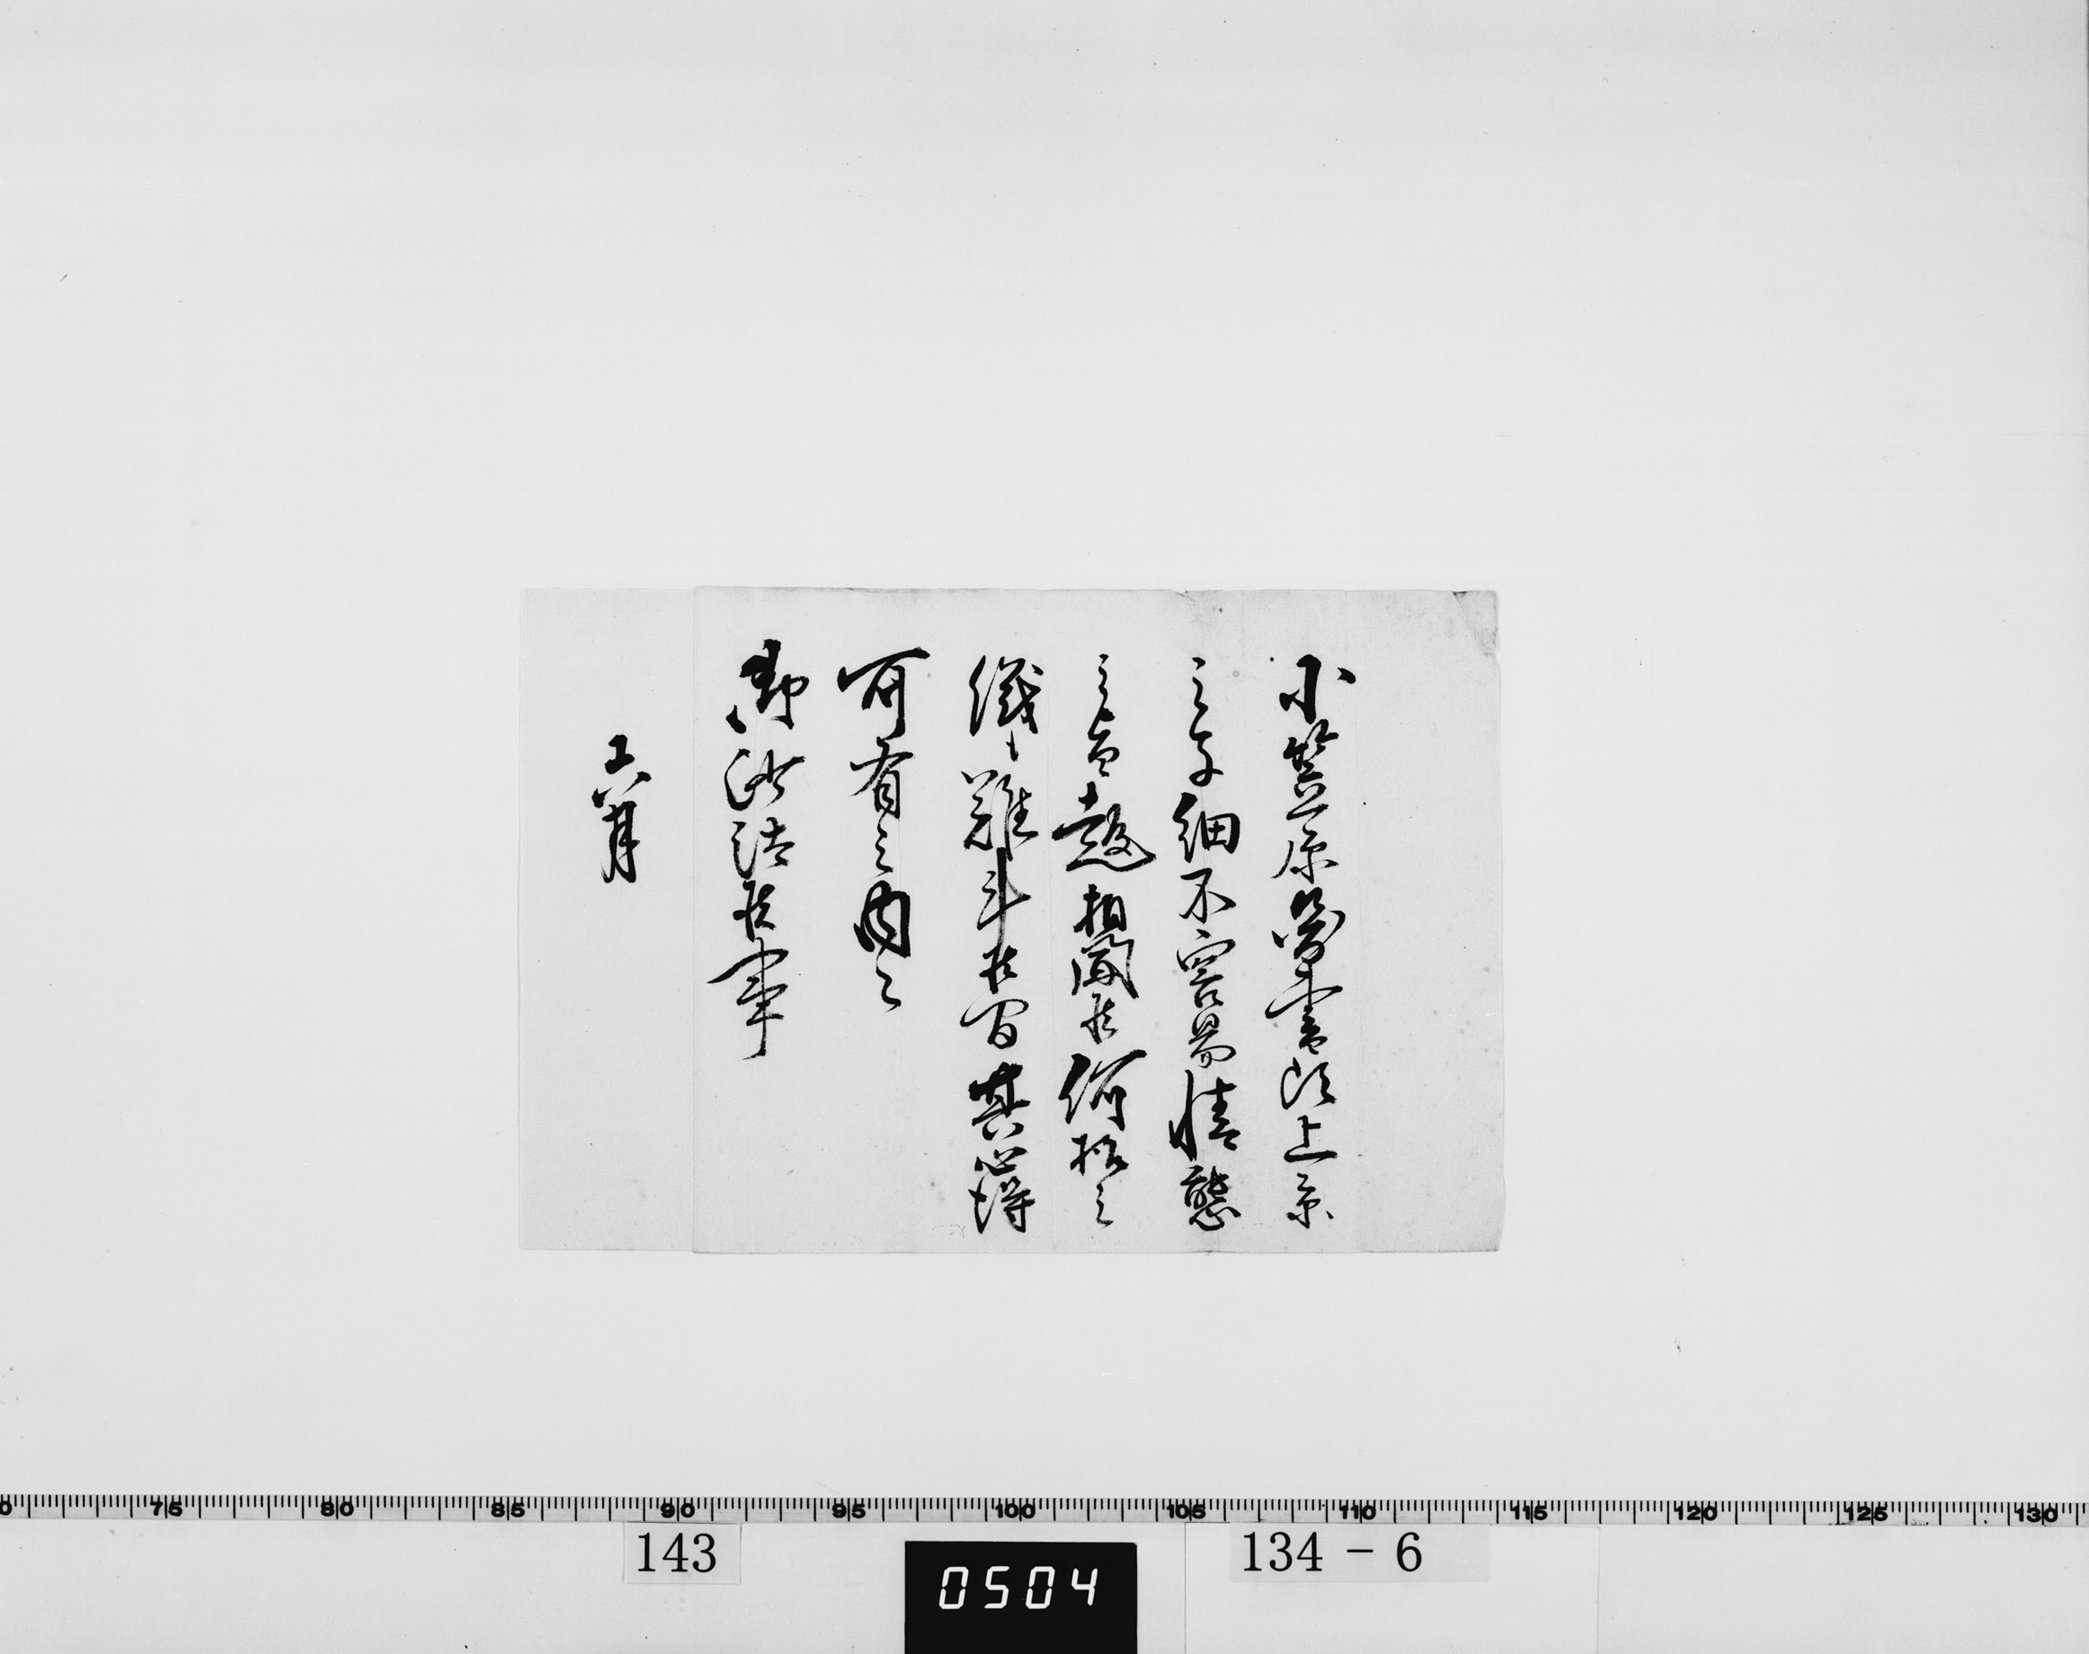 小笠原図書頭上京
之子細不容易情態
之旨趣相聞候何様之
儀難計候間其心得
可有之内々
御沙汰候事
六月
143
0504
134-6
70 75 80 85 90 95 100 105 110 115 120 125 130